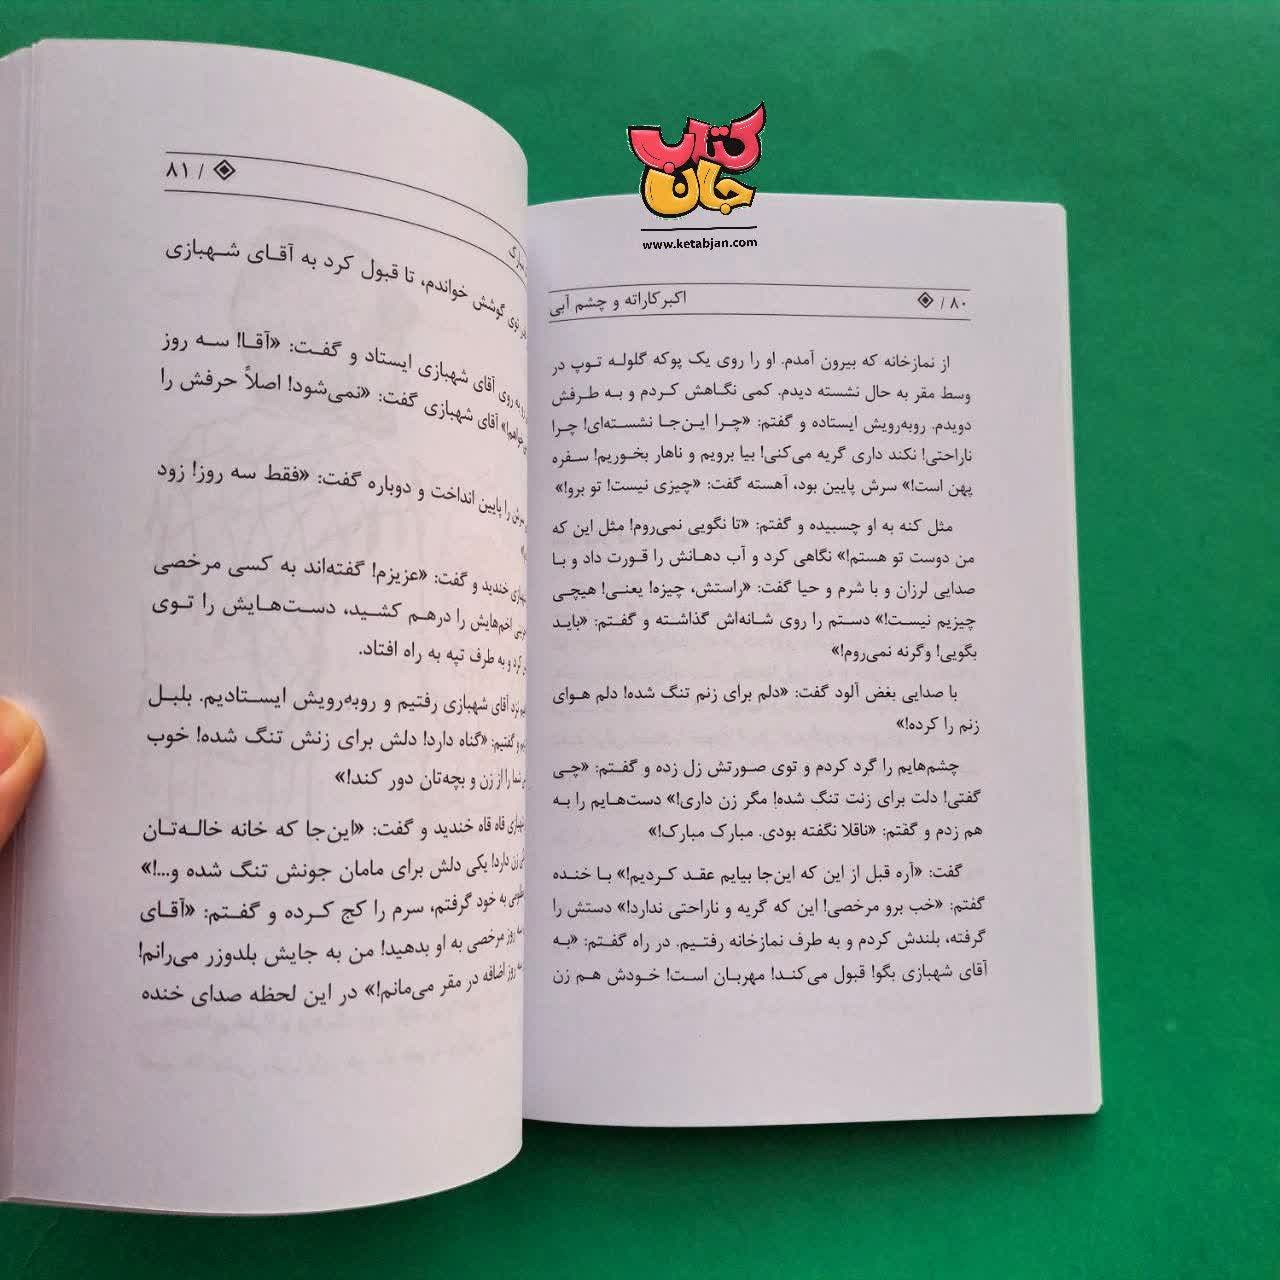 کتاب
جان
www.ketabjan.com
۸۰ /
اکبر کاراته و چشم آبی
از نمازخانه که بیرون آمدم. او را روی یک پوکه گلوله توپ در
وسط مقر به حال نشسته دیدم. کمی نگاهش کردم و به طرفش
دویدم. روبه‌رویش ایستاده و گفتم: «چرا این‌جا نشسته‌ای! چرا
ناراحتی! نکند داری گریه می‌کنی! بیا برویم و ناهار بخوریم! سفره
پهن است!» سرش پایین بود، آهسته گفت: «چیزی نیست! تو برو!»
مثل کنه به او چسبیده و گفتم: «تا نگویی نمی‌روم! مثل این که
من دوست تو هستم!» نگاهی کرد و آب دهانش را قورت داد و با
صدایی لرزان و با شرم و حیا گفت: «راستش، چیزه! یعنی! هیچی
چیزیم نیست!» دستم را روی شانه‌اش گذاشته و گفتم: «باید
بگویی! وگرنه نمی‌روم!»
با صدایی بغض آلود گفت: «دلم برای زنم تنگ شده! دلم هوای
زنم را کرده!»
چشم‌هایم را گرد کردم و توی صورتش زل زده و گفتم: «چی
گفتی! دلت برای زنت تنگ شده! مگر زن داری!» دست‌هایم را به
هم زدم و گفتم: «ناقلا نگفته بودی. مبارک مبارک!»
گفت: «آره قبل از این که این‌جا بیایم عقد کردیم!» با خنده
گفتم: «خب برو مرخصی! این که گریه و ناراحتی ندارد!» دستش را
گرفته، بلندش کردم و به طرف نمازخانه رفتیم. در راه گفتم: «به
آقای شهبازی بگو! قبول می‌کند! مهربان است! خودش هم زن
۸۱ /
توی گوشش خواندم، تا قبول کرد به آقای شهبازی
روی آقای شهبازی ایستاد و گفت: «آقا! سه روز
آقای شهبازی گفت: «نمی‌شود! اصلاً حرفش را
را پایین انداخت و دوباره گفت: «فقط سه روز! زود
خندید و گفت: «عزیزم! گفته‌اند به کسی مرخصی
اخم‌هایش را درهم کشید، دست‌هایش را توی
کرد و به طرف تپه به راه افتاد.
نزد آقای شهبازی رفتیم و روبه‌رویش ایستادیم. بلبل
و گفتیم: «گناه دارد! دلش برای زنش تنگ شده! خوب
شما را از زن و بچه‌تان دور کند!»
قاه قاه خندید و گفت: «این‌جا که خانه خاله‌تان
زن دارد! یکی دلش برای مامان جونش تنگ شده و...!»
به خود گرفتم، سرم را کج کرده و گفتم: «آقای
روز مرخصی به او بدهید! من به جایش بلدوزر می‌رانم!
روز اضافه در مقر می‌مانم!» در این لحظه صدای خنده